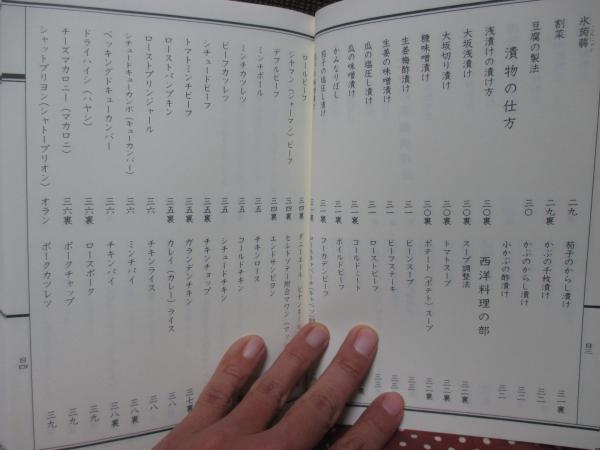 氷蒟蒻 二九
割菜 二九裏
豆腐の製法 三〇
漬物の仕方
浅漬けの漬け方 三〇裏
大坂浅漬け 三〇裏
大坂切り漬け 三〇裏
糠味噌漬け 三〇裏
生姜梅酢漬け 三一
生姜の味噌漬け 三一
瓜の塩圧し漬け 三一
瓜の味噌漬け 三一
かみなりぼし 三一裏
茄子の塩圧し漬け 三一裏
茄子のからし漬け 三一裏
かぶの千枚漬け
かぶのからし漬け 三二
小かぶの酢漬け 三二
西洋料理の部
スープ調整法 三二裏
トマトスープ 三二裏
ポテート（ポテト）スープ 三二裏
ビーンスープ 三三
ビーフステーキ 三三
ローストビーフ 三三
コールドミート
ボイルドビーフ
フーカデンビーフ
目三
ロールビーフ 三四裏
ジヤマン（ジャーマン）ビーフ 三四裏
デブルビーフ 三四裏
ミンチボール 三五
ミンチカツレツ 三五
ビーフカツレツ 三五
シチュードビーフ 三五裏
トマトミンチビーフ 三五裏
ローストパンプキン 三五裏
ローストブリンジャール 三六
シチュードキューカンボ（キューカンバー） 三六
ベッキングドキューカンバー 三六
ドライハイシ（ハヤシ） 三六裏
チーズマカロニー（マカロニ） 三六裏
シャットブリヨン（シャトーブリオン） オラン
エンドサンビヨン
チキンロース
コールドチキン
シチュードチキン
チキンチョップ
ガランデンチキン 三七裏
カレイ（カレー）ライス 三八
チキンライス 三八
ミンチパイ 三八裏
チキンパイ 三八裏
ロースポーク 三九
ポークチャップ 三九
ポークカツレツ 三九
目四